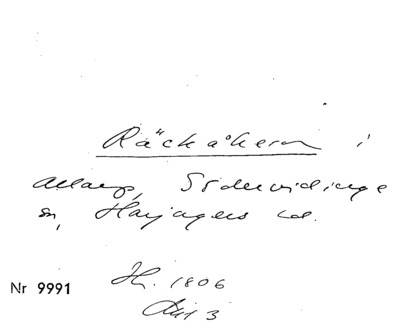 Räckåkern i
Allarp, Södervidinge
sn, Harjagers hd.
Sk. 1806
Nr 9991
Akt 3